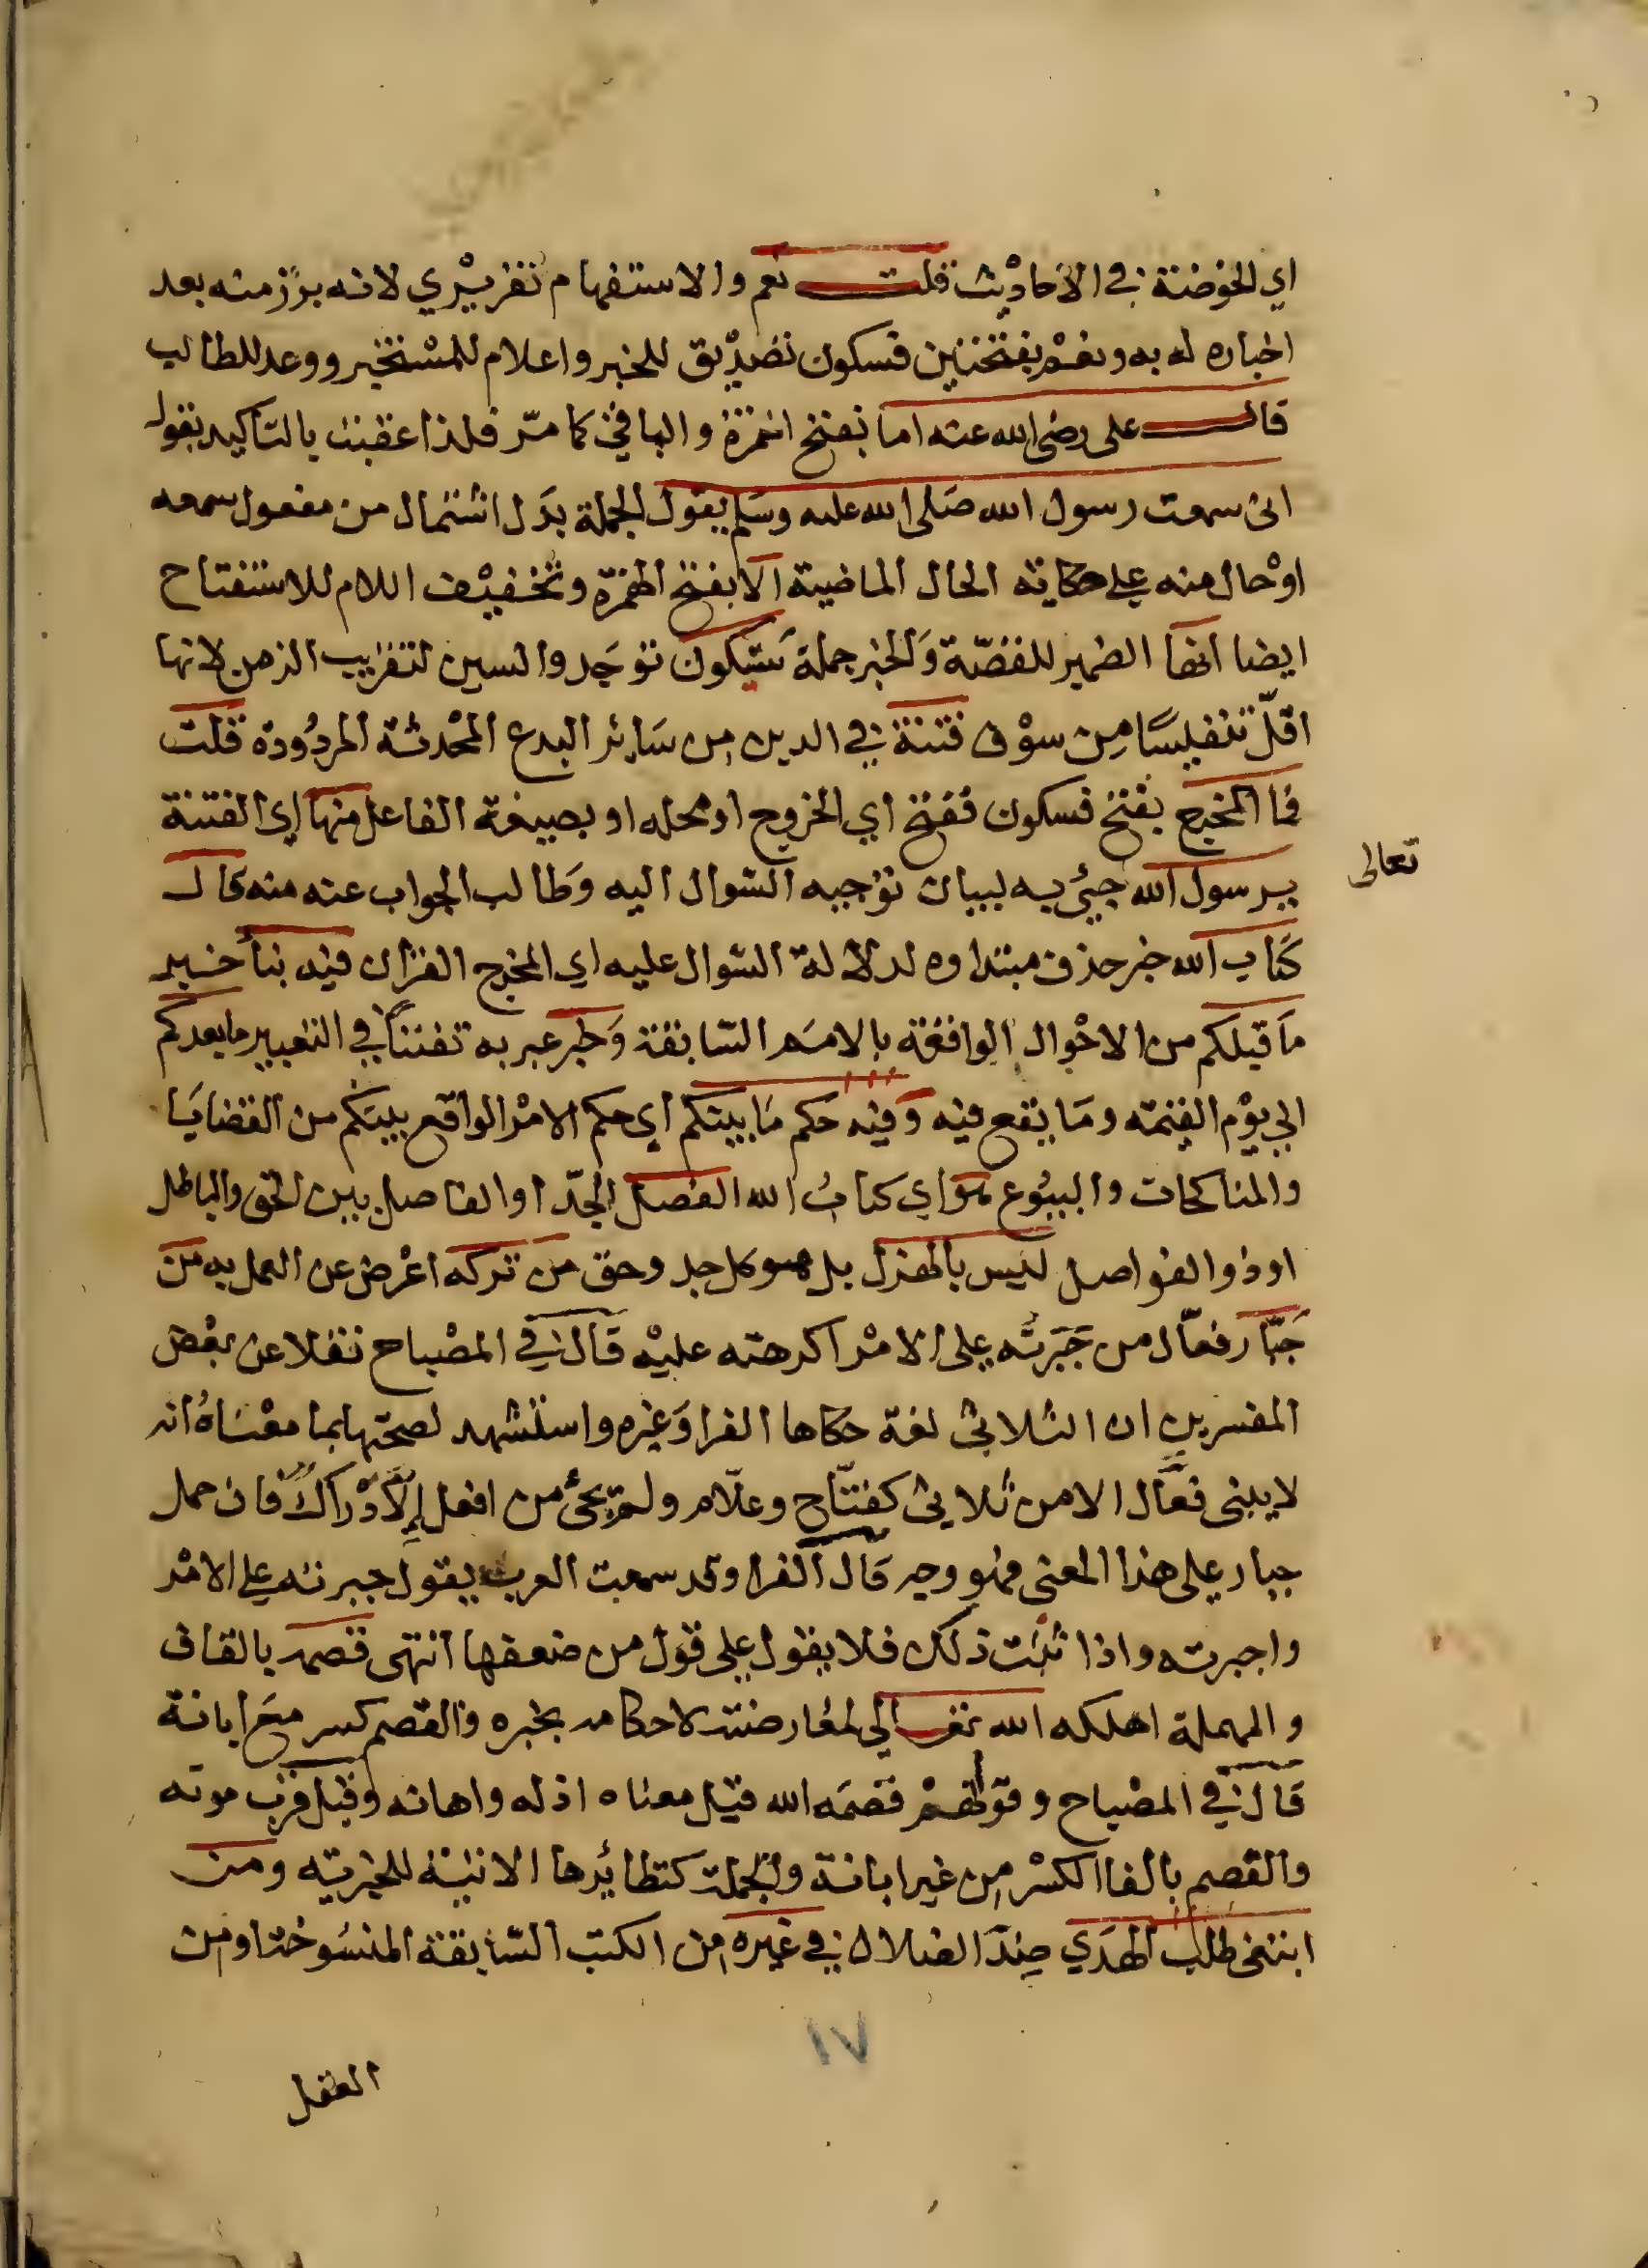 اي الخوضة في الاحاديث قلت نعم والاستفهام تقريري لانه برز منه بعد
اخباره له به ونعم بفتحتين فسكون تصديق للخبر واعلام للمستخبر ووعد للطالب
قال على رضى الله عنه اما بفتح الهمزة والباقي كما مرّ فلذا عقبت بالتاكيد بقوله
انى سمعت رسول الله صَلى الله عليه وسَلم يقول الجملة بدَل اشتمال من مفعول سمعه
اوْ حال منه على حكاية الحال الماضية الا بفتح الهمزة وتخفيْف اللام للاستفتاح
ايضا انها الضمير للقصّة وَالخبر جملة سَتكون توجَد والسين لتقريب الزمن لانها
اقلّ تنفيسًا مِن سوْف فتنة في الدين من سَائر البدع المحْدثة المردُودة قلت
فما المخرج بفتح فسكون ففتح اي الخروج او محله او بصيغة الفاعل منها اى الفتنة
يرسول الله جيئ به لبيان توْجيه السّوال اليه وَطالب الجواب عنه منه قال
كتاب الله خبر حذف مبتداوه لدلالة السّوال عليه اي المخرج القران فيه نبأ خبر
مَا قبلكم من الاحْوال الواقعَة بالامَم السّابقة وَخبر عبر به تفننًا في التعبير ما بعدكم
الى يوْم القيمة ومَا يقع فيه وَفيه حكم مَا بينكم اي حكم الامْر الواقع بينَكم من القضايَا
والمناكحات والبيُوع هو اي كتابُ الله الفصل الجدّ او الفاصل بين الحق والباطل
او ذو الفواصل ليس بالهزل بل هو كل جد وحق من تركه اعْرض عن العمل به من
جَبّار فعّال من جَبَرتُه على الامْر اكرهته عليْه قال في المصْباح نقلا عن بعْض
المفسرين ان الثلاثي لغة حكاها الفرا وَغيره واستشهد لصحتها بما معْنَاهُ انه
لا يبنى فعّال الا من ثلاثى كفتّاح وعلّام ولم يجئ من افعل إلاّ دْراكٌ فان حمل
جبار على هذا المعنى فهو وجه قال الفرا وقد سمعت العرب يقول جبرته على الامْر
واجبرته واذا ثبَت ذلك فلا يقول على قوْل من ضعفها انتهى قصمه بالقاف
والمهملة اهلكه الله تعالى لمعارضته لاحكامه بخبره والقصم كسر مَع ابانة
قال في المصْباح وقوْلهمْ قصَمه الله قيْل معناه اذله واهانه وقيل قرّب موته
والفصم بالفا الكسْر من غير ابانة والجملة كنظائرها الاتيْة للخبرية ومن
ابتغى طلب الهدَي ضدّ الضلال في غيره من الكتب السّابقة المنسُوخة او من
تعالى
١٧
العقل